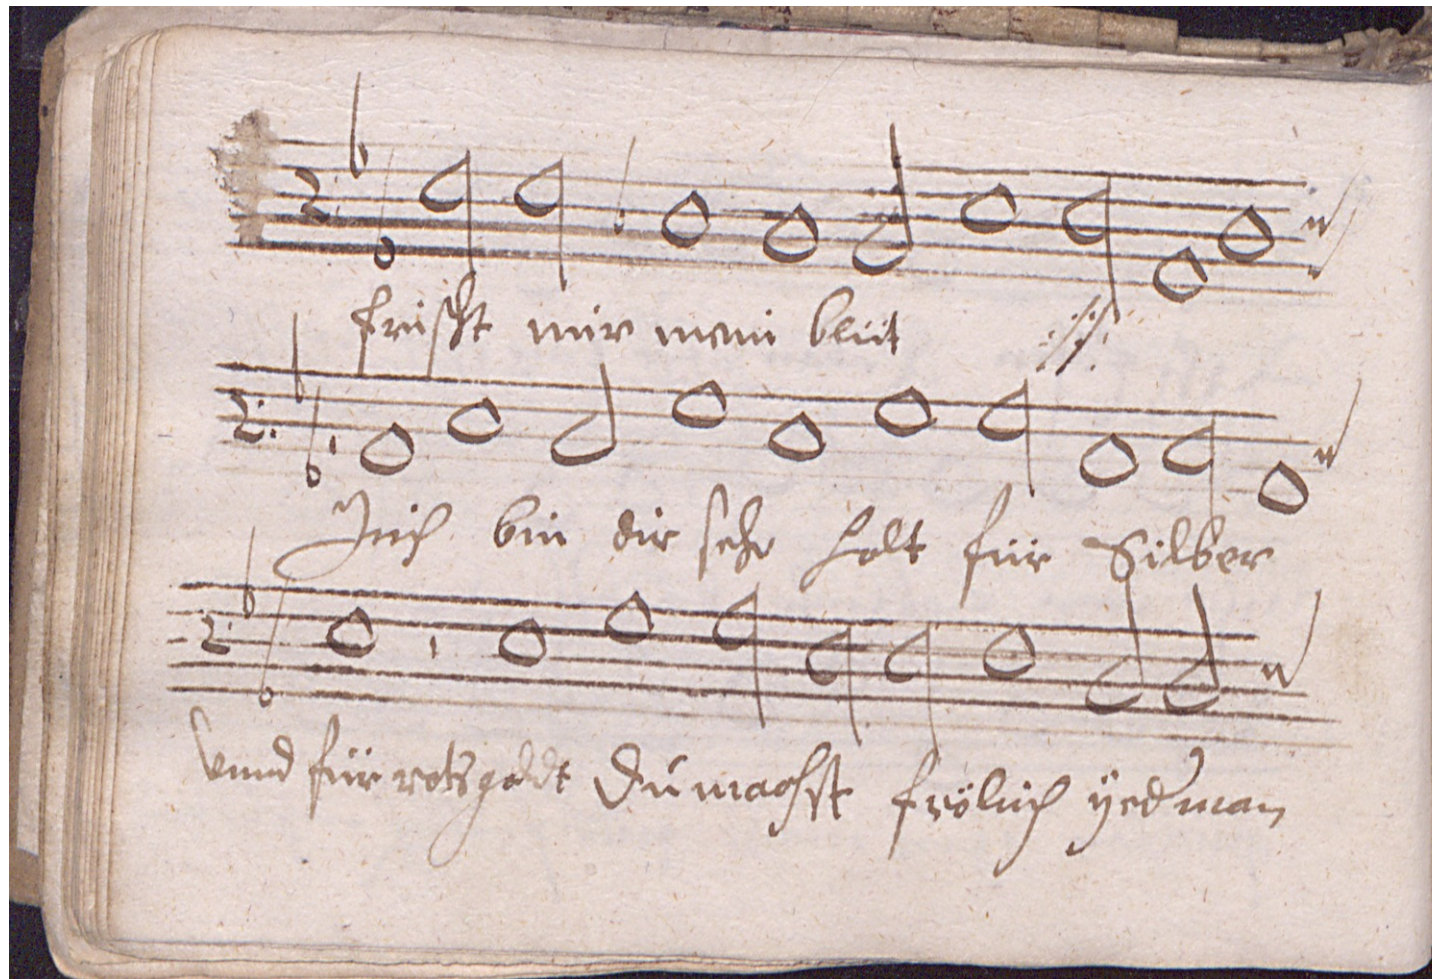 frischt mir mein blüt ://:
Jch bin dir sehr holt für Silber
vnnd für rots goldt Du machst frölich yederman